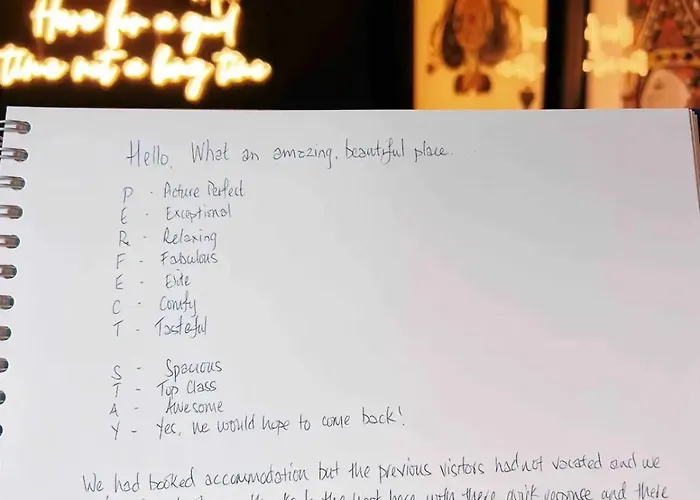 Here for a good
time not a long time
Hello, What an amazing, beautiful place.
P - Acture Perfect
E - Exceptional
R - Relaxing
F - Fabulous
E - Elite
C - Comfy
T - Tasteful
S - Spacious
T - Top Class
A - Awesome
Y - Yes, we would hope to come back!
We had booked accommodation but the previous visitors had not vacated and we
the host here with there quick response and there